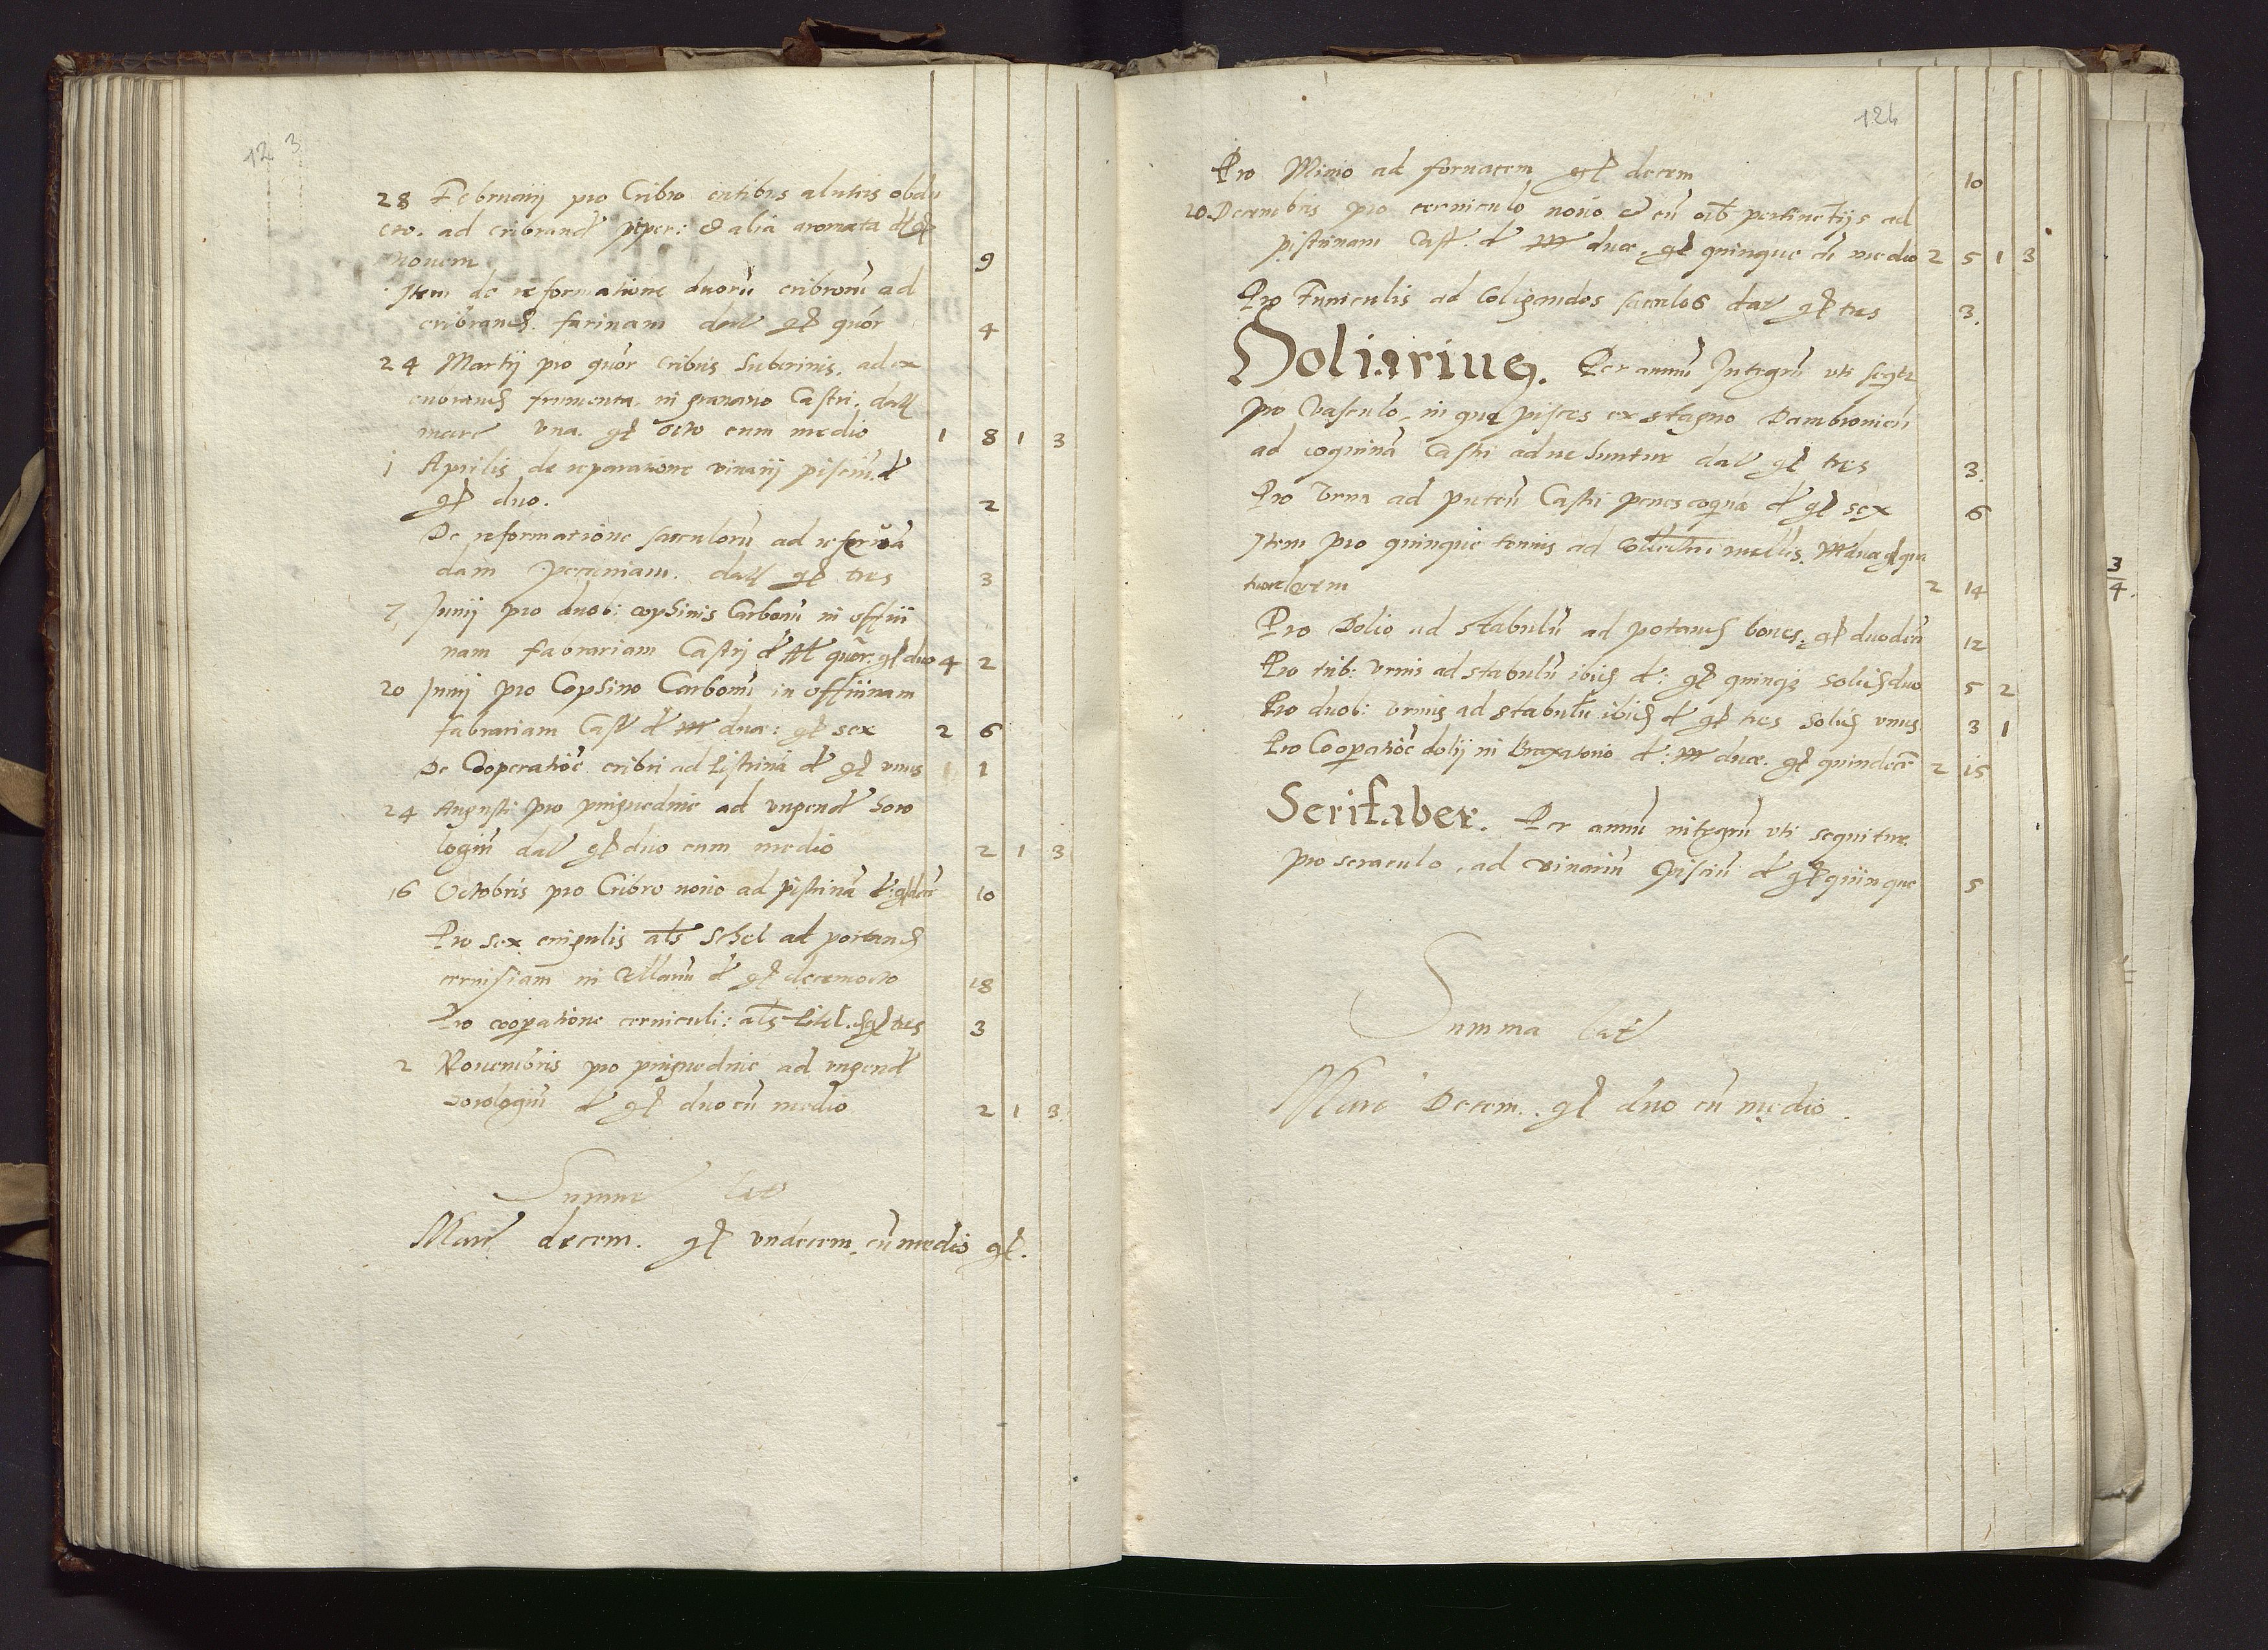 123
28 Februarij pro Cribro cutibus aluteis obdu
cto. ad cribrand piper: & alia aromata dt gr
nouem 9
Item de reformatione duorū cribrorū ad
cribrand. farinam dat gr quor 4
24 Martij pro quor cribris suberinis. ad ex
cribrand frumenta in granario Castri. dat
marc vna. gr octo cum medio 1 8 1 3
j Aprilis de reparatione viuarij pisciū. d
gr duo. 2
De reformatione sacculorū ad reseruā
dam pecuniam. dat gr tres 3
7 Junij pro duob: cophinis Carbonū in offici
nam fabrariam Castrj d M quor: gr duo 4 2
20 Junij pro Cophino Carbonū in officinam
fabrariam Cast d M duae: gr sex 2 6
De Cooperatioē cribri ad Pistrinā d gr vnus 1
24 Augusti pro pinguedine ad vngend horo
logiū dat gr duo cum medio 2 1 3
16 Octobris pro Cribro nouo ad pistrinā d: gr dece 10
Pro sex cingulis als Schel ad portand
ceruisiam in cellariū d gr decemocto 18
Pro cooperatione cerniculi: als Pitel. d gr tres 3
2 Nouembris pro pinguedine ad vngend
horologiū d gr duo cū medio 2 1 3
Summa lat
Marc decem. gr vndecem cū medio gr.
124
Pro Minio ad fornacem gr decem 10
20 Decembris pro cerniculo nouo & cū oīb pertinētijs ad
pistrinam Cast. d M duae. gr quinque cū medio 2 5 1 3
Pro Funiculis ad Coligandos sacculos dat gr tres 3.
Doliarius. Per annū Integrū vti seqtr
pro Vasculo, in quo pisces ex stagno Dambronicū
ad coquinā Castri aduehuntur dat gr tres 3.
Pro Vrna ad puteū Castri penes coqnā d gr sex 6
Item pro quinque tonnis ad Collectur mellis. M duae gr qua
tuordecem 2 14
Pro Dolio ad stabulū ad potand boues. gr duodeci 12
Pro trib: vrnis ad stabulū ibid d: gr quinque solid duo 5 2
Pro duob: vrnis ad stabulū ibid d gr tres solid vnus 3 1
Pro Cooperatioē dolij in Braxatorio d: M duae. gr quindece 2 15
Serifaber. Per annū integrū vti sequitur
pro seraculo, ad viuariū Pisciū d gr quinque 5
Summa lat
Marc Decem. gr duo cū medio.
3
4.